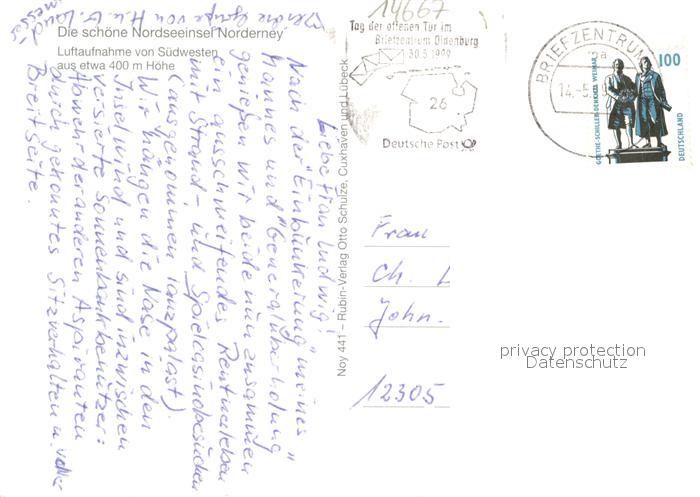 14667
Die schöne Nordseeinsel "Norderney"
Luftaufnahme von Südwesten
aus etwa 400 m Höhe
Tag der offenen Tür im
Briefzentrum Oldenburg
30.5.1999
26
Deutsche Post
BRIEFZENTRUM
14.-5.
100
GOETHE-SCHILLER-DENKMAL WEIMAR
DEUTSCHLAND
Noy 441 – Rubin-Verlag Otto Schulze, Cuxhaven und Lübeck
Liebe Frau Ludwig!
Nach der "Einbunkerung" meines
Mannes und "Generalüberholung"
genießen wir beide nun zusammen
ein ausschweifendes Rentnerleben
mit Strand- und Spielcasinobesuchen
(ausgenommen Tanzpalast).
Wir hängen die Nase in den
Inselwind und sind inzwischen
versierte Sonnenbankbenützer:
Abwehr der anderen Aspiranten
durch gekonntes Sitzverhalten u. voller
Breitseite.
Grüße von H. u. G.
Frau
Ch. L
John.
12305
privacy protection
Datenschutz